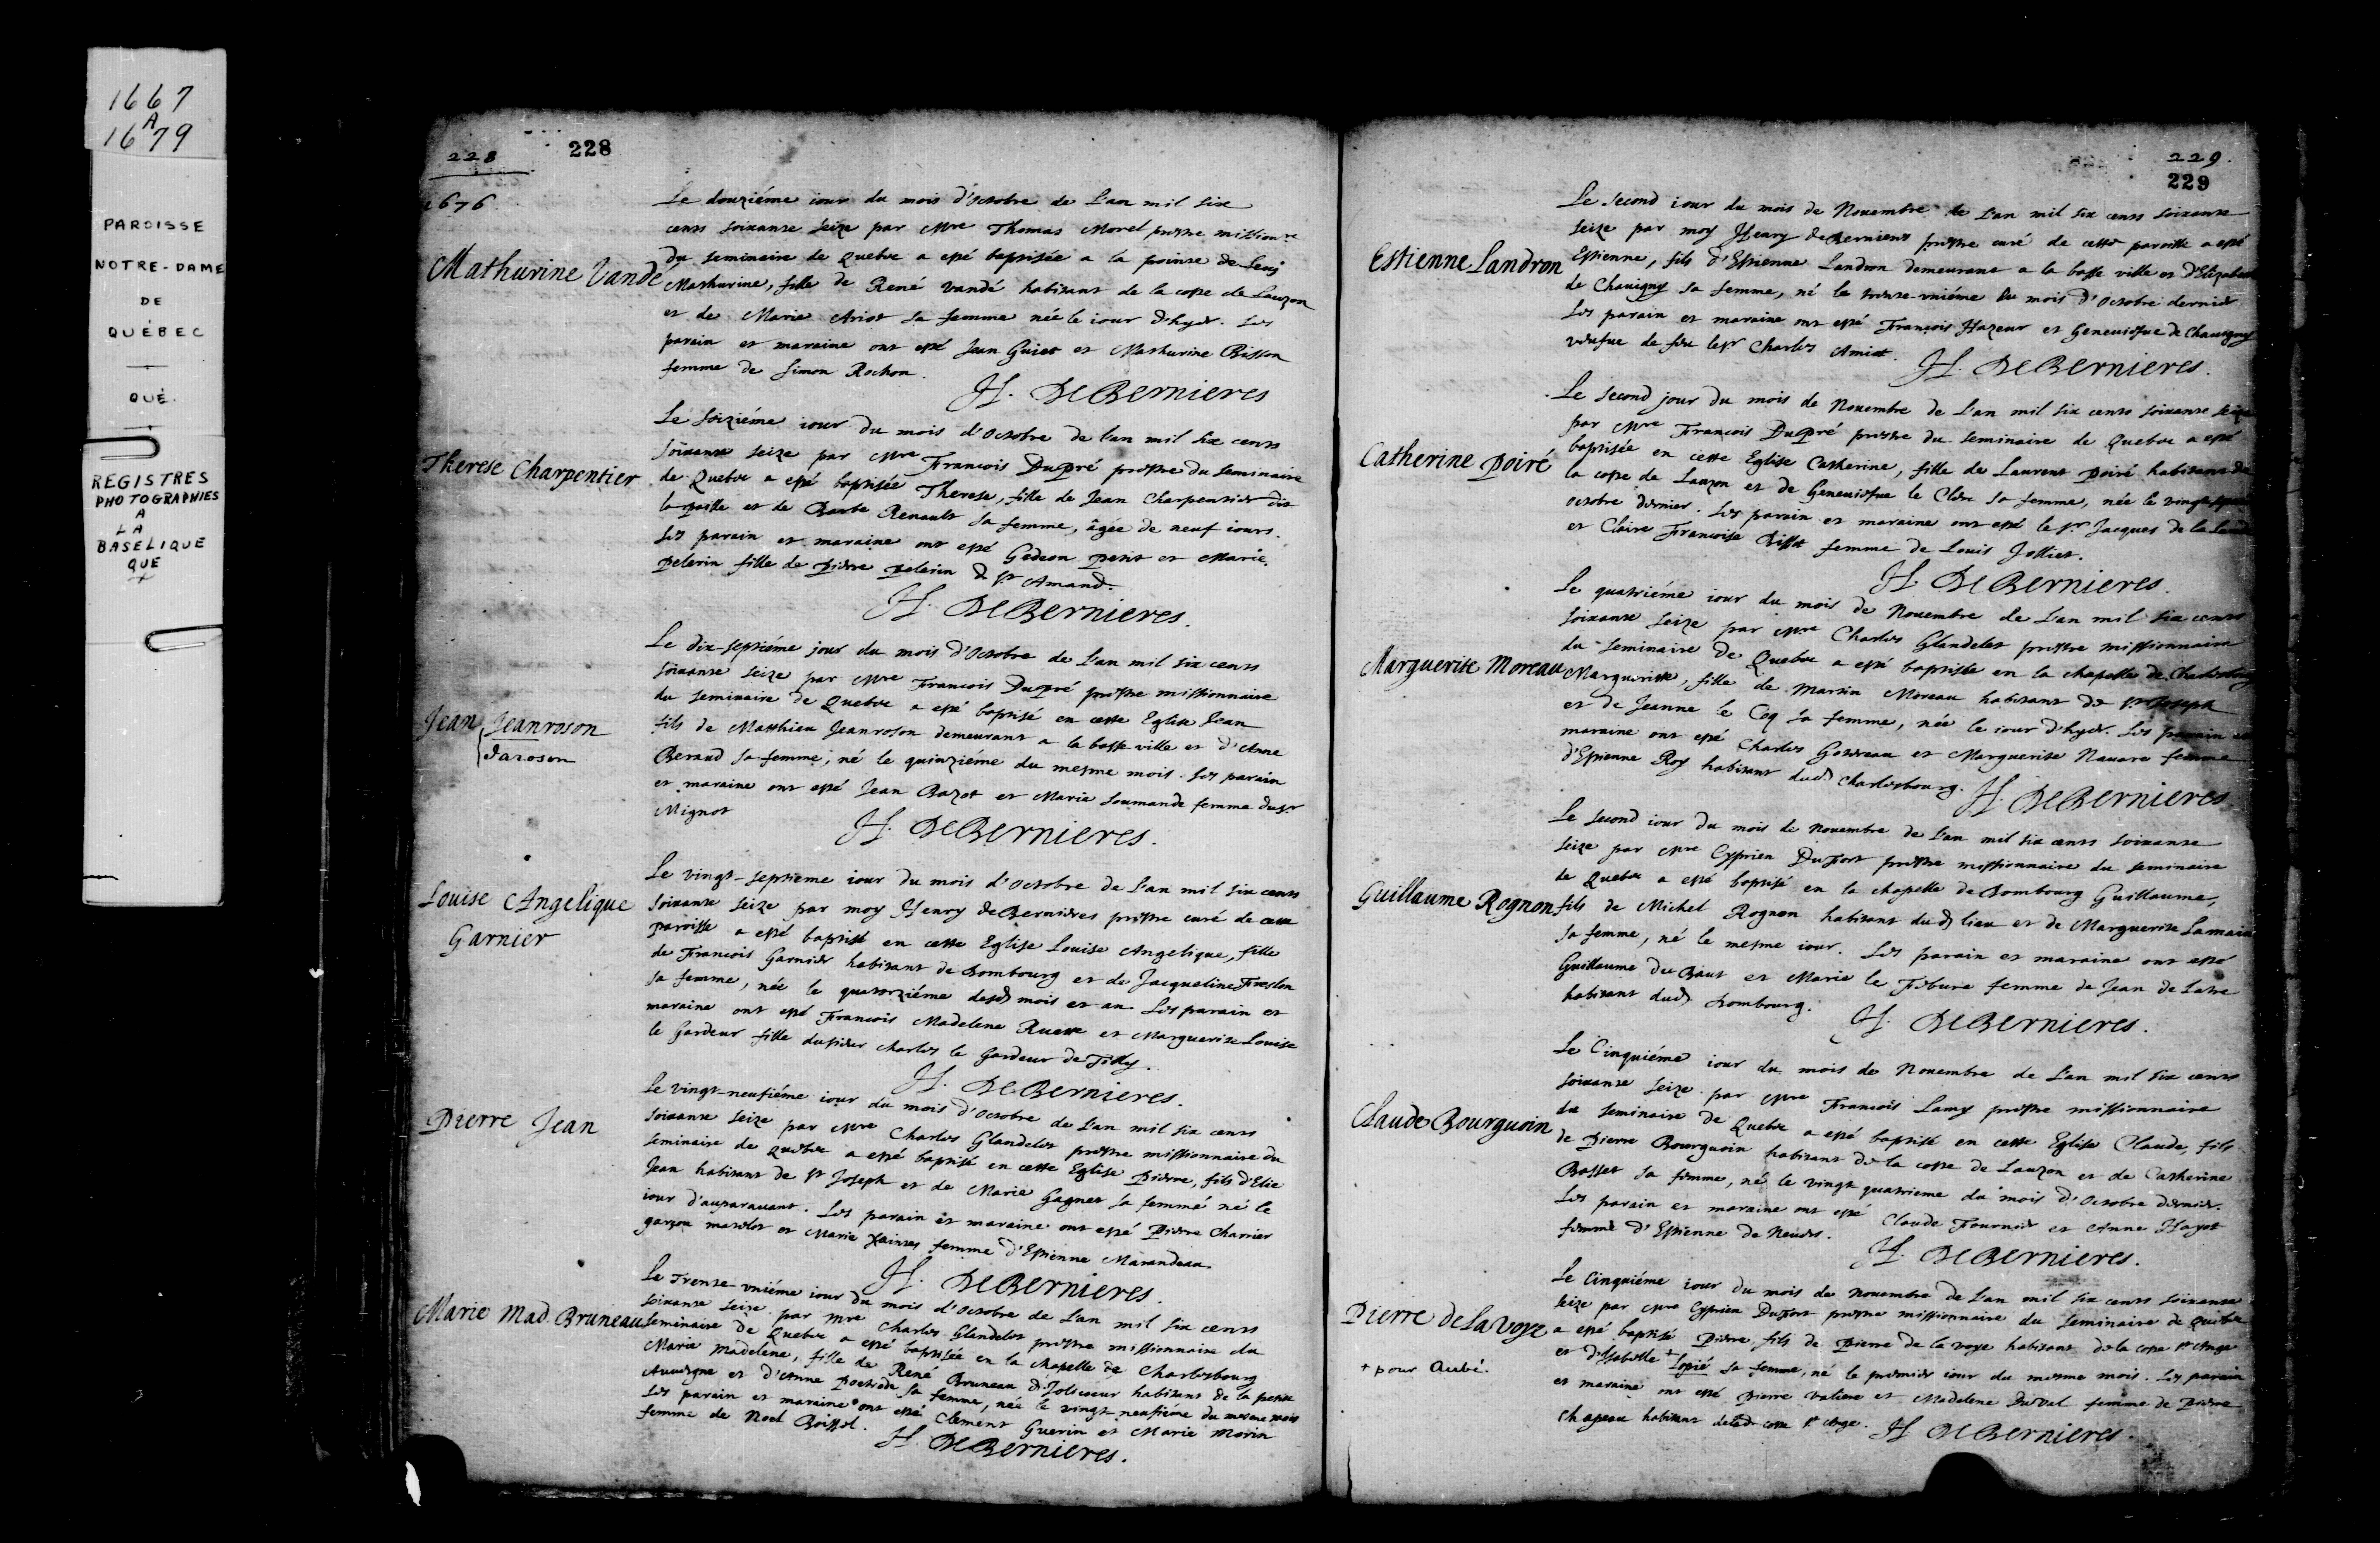 1667
A
1679
PAROISSE
NOTRE-DAME
DE
QUÉBEC
QUÉ.
REGISTRES
PHOTOGRAPHIES
A
LA
BASELIQUE
QUE
228
228
1676
Mathurine Vandé
Le douziéme iour du mois d'octobre de L'an mil six
cents soixante seize par Mre Thomas Morel prestre missionre
du seminaire de Quebec a esté baptisée a la pointe de Levi
Mathurine, fille de René Vandé habitant de la coste de Lauzon
et de Marie Ariot sa femme née le iour d'hyer. Les
parain et maraine ont esté Jean Guiet et Mathurine Bisson
femme de Simon Rochon.
H. DeBernieres
Therese Charpentier
Le seiziéme iour du mois d'octobre de l'an mil six cents
soixante seize par Mre Francois DuPré prestre du seminaire
de Quebec a esté baptisée Therese, fille de Jean Charpentier dit
la paille et de Barbe Renault sa femme, âgée de neuf iours.
Les parain et maraine ont esté Gedeon petit et Marie
pelerin fille de Pierre pelerin de St Amand.
H. DeBernieres.
Jean Jeanroson
Jaroson
Le dix-septiéme jour du mois d'Octobre de L'an mil six cents
soixante seize par Mre Francois DuPré prestre missionnaire
du seminaire de Quebec a esté baptisé en cette Eglise Jean
fils de Matthieu Jeanroson demeurant a la basse ville et d'Anne
Beraud sa femme, né le quinziéme du mesme mois. Les parain
et maraine ont esté Jean Bazot et Marie Soumande femme du sr
Mignot
H. DeBernieres.
Louise Angelique
Garnier
Le vingt-septieme iour du mois d'Octobre de L'an mil six cents
soixante seize par moy Henry deBernieres prestre curé de cette
paroisse a esté baptisé en cette Eglise Louise Angelique, fille
de Francois Garnier habitant de Dombourg et de Jacqueline Freslon
sa femme, née le quatorziéme desd mois et an Les parain et
maraine ont esté Francois Madelene Ruette et Marguerite Louise
le Gardeur fille du sieur Charles le Gardeur de Tilly.
H. DeBernieres.
Pierre Jean
Le vingt-neufiéme iour du mois d'Octobre de L'an mil six cents
soixante seize par Mre Charles Glandelet prestre missionnaire du
seminaire de Quebec a esté baptisé en cette Eglise Pierre, fils d'Elie
Jean habitant de St Joseph et de Marie Gagnet sa femme né le
iour d'auparavant. Les parain et maraine ont esté Pierre Charier
garçon matelot et Marie femme d'Estienne Marandeau.
H. DeBernieres.
Marie Mad. Bruneau
Le Trente-uniéme iour du mois d'Octobre de L'an mil six cents
soixante seize par Mre Charles Glandelet prestre missionnaire du
seminaire de Quebec a esté baptisée en la chapelle de Charlesbourg
Marie Madelene, fille de René Bruneau dt Jolicoeur habitant de la petite
Auvergne et d'Anne Poetrede sa femme, née le vingt-neufiéme du mesme mois
Les parain et maraine ont esté Clement Guerin et Marie Morin
femme de Noel Boissel.
H. DeBernieres.
229.
229
Estienne Landron
Le Second iour du mois de Novembre de L'an mil six cents soixante
seize par moy Henry deBernieres prestre curé de cette paroisse a esté
Estienne, fils d'Estienne Landron demeurant a la basse ville et d'Elizabeth
de Chauigny sa femme, né le trente-uniéme du mois d'Octobre dernier
Les parain et maraine ont esté François Hazeur et Geneuiesue de Chauigny
veufue de feu le sr Charles Amiot.
H. DeBernieres.
Catherine Poiré
Le Second jour du mois de Novembre de L'an mil six cents soixante seize
par Mre Francois DuPré prestre du seminaire de Quebec a esté
baptisée en cette Eglise Catherine, fille de Laurent Poiré habitant de
la coste de Lauzon et de Geneuiesue le Clere sa femme, née le vingt
octobre dernier. Les parain et maraine ont esté le sr Jacques de la Lande
et Claire Francoise Bissot femme de Louis Jolliet.
H. DeBernieres.
Marguerite Moreau
Le quatriéme iour du mois de Novembre de L'an mil six cents
soixante seize par Mre Charles Glandelet prestre missionnaire
du seminaire de Quebec a esté baptisée en la chapelle de Charlesbourg
Marguerite, fille de Martin Moreau habitant de St Joseph
et de Jeanne le Coq sa femme, née le iour d'hyer. Les parain et
maraine ont esté Charles Gotreau et Marguerite Navare femme
d'Estienne Roy habitant dud Charlesbourg.
H. DeBernieres
Guillaume Rognon
Le Second iour du mois de Novembre de L'an mil six cents soixante
seize par Mre Cyprien Dufort prestre missionnaire du seminaire
de Quebec a esté baptisé en la chapelle de Dombourg Guillaume,
fils de Michel Rognon habitant dud lieu et de Marguerite Lamain
sa femme, né le mesme iour. Les parain et maraine ont esté
Guillaume du Baut et Marie le Febure femme de Jean de Latre
habitant dud Dombourg.
H. DeBernieres.
Claude Bourguoin
Le Cinquiéme iour du mois de Novembre de L'an mil six cents
soixante seize par Mre Francois Lamy prestre missionnaire
du seminaire de Quebec a esté baptisé en cette Eglise Claude, fils
de Pierre Bourguoin habitant de la coste de Lauzon et de Catherine
Basset sa femme, né le vingt quatrieme du mois d'Octobre dernier.
Les parain et maraine ont esté Claude Fournier et Anne Hayot
femme d'Estienne de Neuers.
H. DeBernieres.
Pierre de Lavoye
+ pour Aubé.
Le Cinquiéme iour du mois de Novembre de L'an mil six cents soixante
seize par Mre Cyprien Dufort prestre missionnaire du Seminaire de Quebec
a esté baptisé Pierre, fils de Pierre de la voye habitant de la coste St Ange
et d'Isabelle + Lopié sa femme, né le premier iour du mesme mois. Les parain
et maraine ont esté Pierre Valiere et Madelene Duval femme de Pierre
Chapeau habitant de lad coste St Ange.
H DeBernieres.